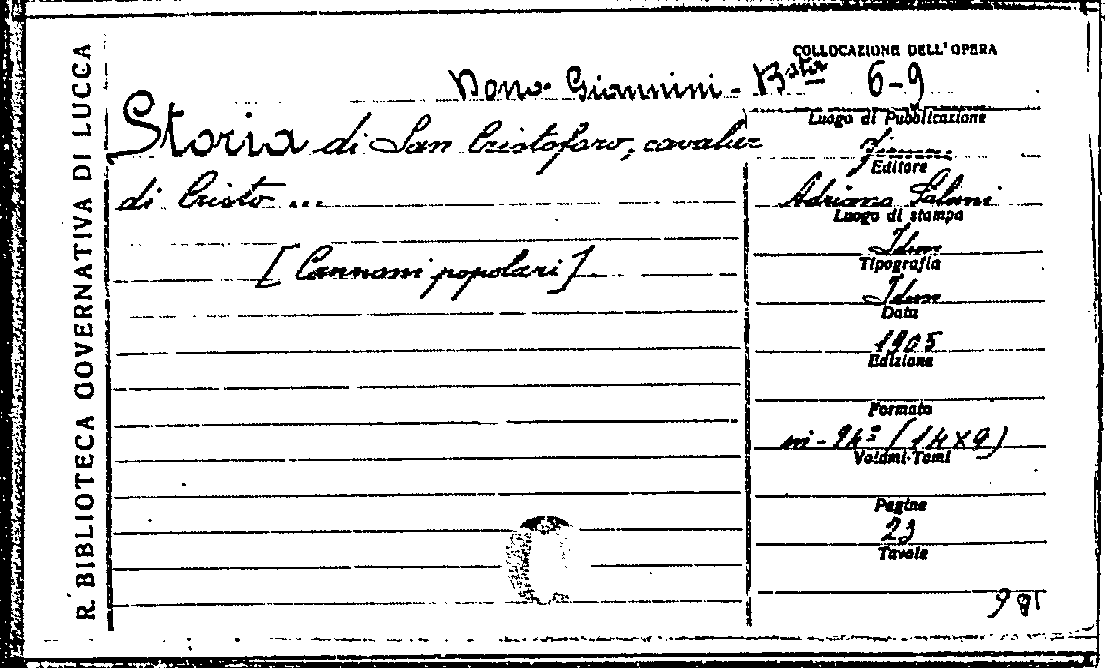 R. BIBLIOTECA GOVERNATIVA DI LUCCA
Dono Giannini - B
Storia di San Cristoforo, cavalier
di Cristo ...
[Canzoni popolari]
COLLOCAZIONE DELL'OPERA
6-9
Luogo di Pubblicazione
Firenze
Editore
Adriano Salani
Luogo di stampa
Idem
Tipografia
Idem
Data
1905
Edizione
Formato
in-24º (14x9)
Volumi-Tomi
Pagine
23
Tavole